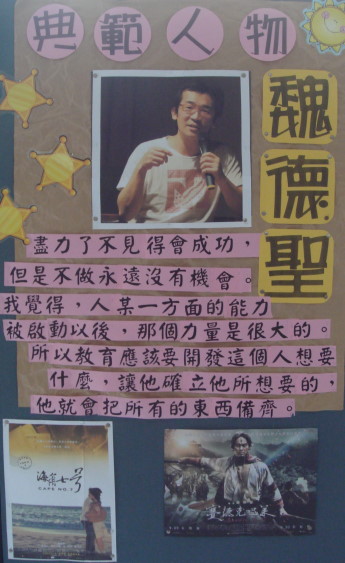 典範人物
魏德聖
盡力了不見得會成功，
但是不做永遠沒有機會。
我覺得，人某一方面的能力
被啟動以後，那個力量是很大的。
所以教育應該要開發這個人想要
什麼，讓他確立他所想要的，
他就會把所有的東西備齊。
海角七号
CAPE NO.7
賽德克巴萊